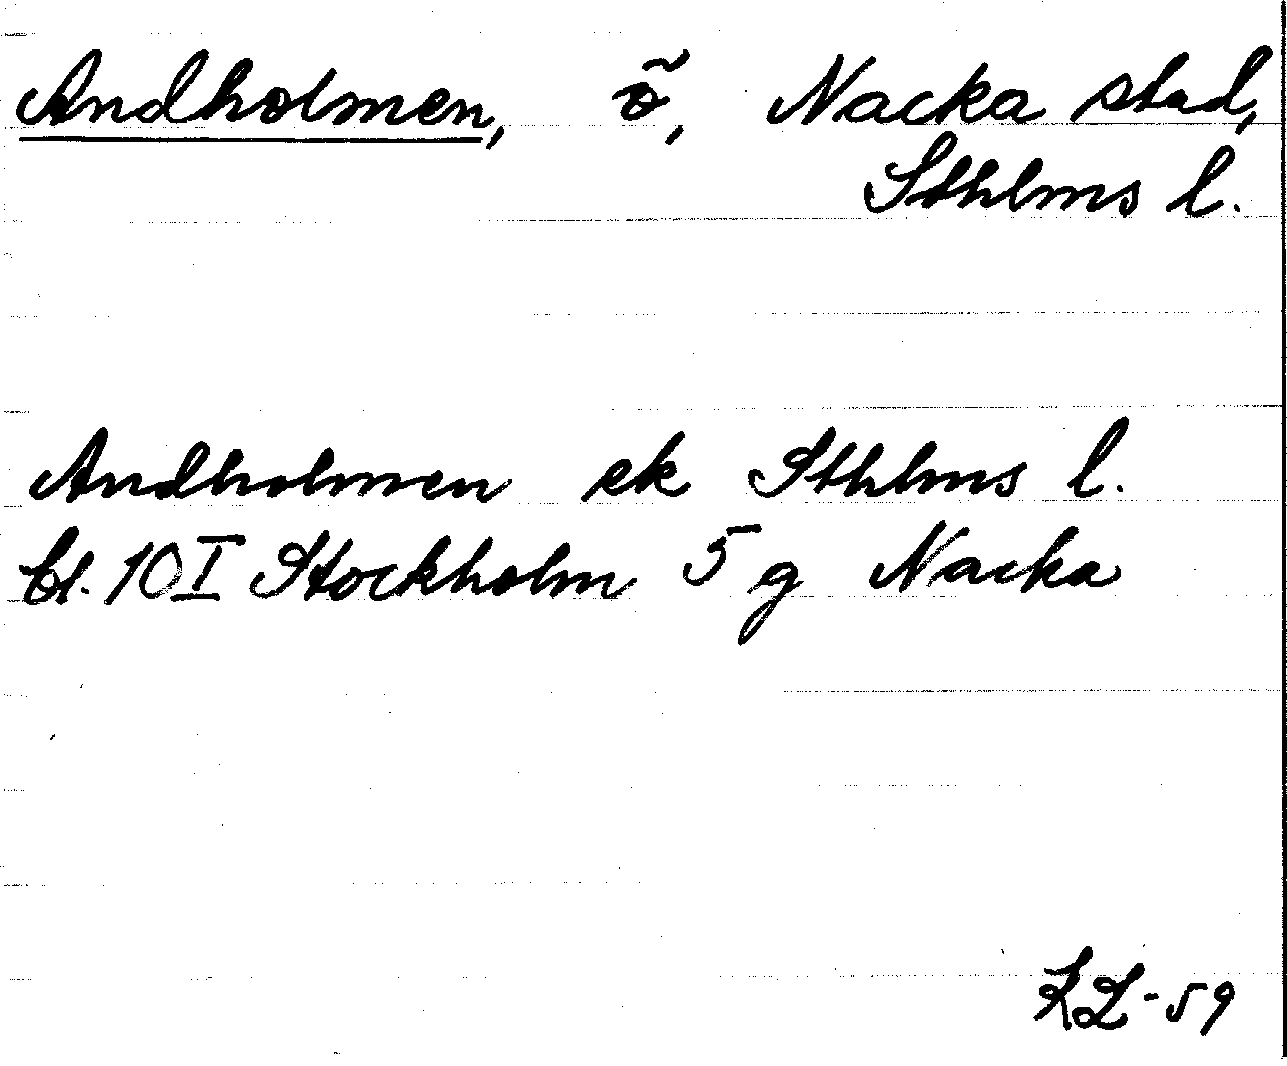 Andholmen, ö, Nacka stad,
Sthlms l.
Andholmen ek Sthlms l.
bl. 10 I Stockholm 5 g Nacka
KL-59